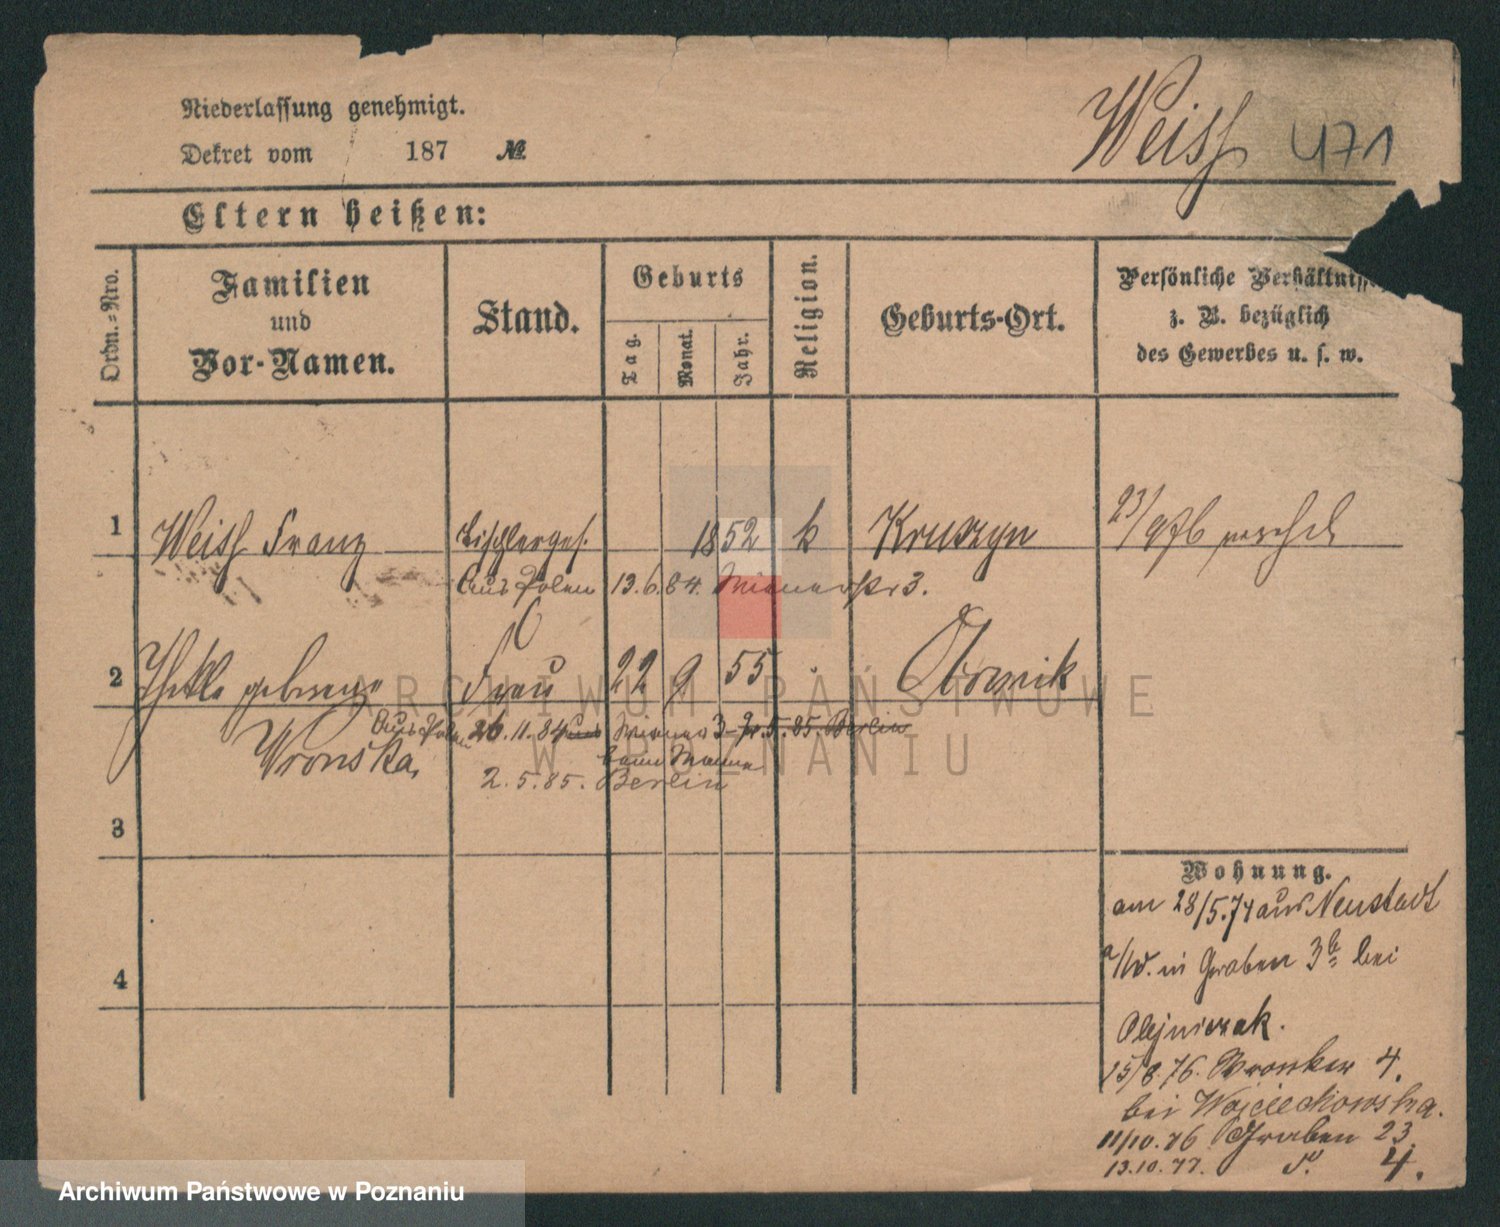 Niederlassung genehmigt.
Dekret vom 187 №
Weiss 471
Eltern heißen:
Ordn.-Nro.
Familien und Vor-Namen.
Stand.
Geburts
Tag. Monat. Jahr.
Religion.
Geburts-Ort.
Persönliche Verhältniss
z. B. bezüglich
des Gewerbes u. s. w.
1 Weiss Franz Tischlerges. 1852 k Kruszyn 23/9 76
Aus Polen 13.6.84. Wienerstr 3.
2 Thekla geborene Frau 22 9 55 Obornik
Aus Polen 26.11.84 aus Wiener 3 2.5.85. Berlin
Wronska,
2.5.85. Berlin
3
4
Wohnung.
am 28/5.74 aus Neustadt
a/W. in Graben 3b bei
Olejniczak.
15/8.76. Wronker 4.
bei Wojciechowska.
11/10.76 Graben 23.
13.10.77. 4.
ARCHIWUM PAŃSTWOWE
W POZNANIU
Archiwum Państwowe w Poznaniu